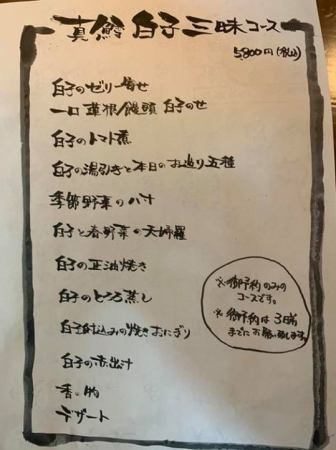 真鱈 白子三昧コース
5,800円(税込)
白子のゼリー寄せ
一口蓮根饅頭 白子のせ
白子のトマト煮
白子の湯引きと本日のお造り五種
季節野菜の八寸
白子と春野菜の天婦羅
白子の正油焼き
白子のとろろ蒸し
白子 の焼きおにぎり
白子の赤出汁
香の物
デザート
※御予約のみの
コースです。
※御予約は3日前
までにお願い致します。